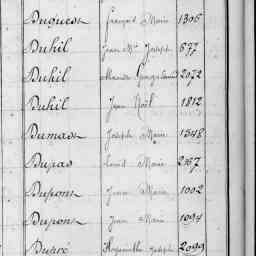 Duguesn François Marie 1306
Duhil Jean Mie Joseph 677
Duhil Alexandre Georges 2072
Duhil Jean Noël 1812
Dumas Joseph Marie 1348
Dupas Louis Marie 2167
Dupons Jean Marie 1002
Dupons Jean Marie 1094
Dupré Hyacinthe Joseph 2099